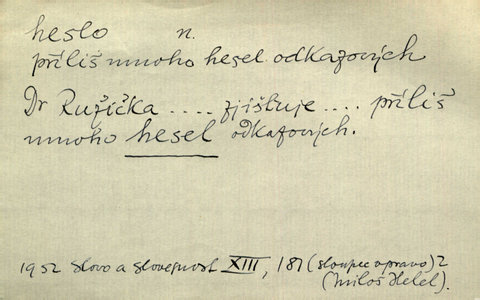 heslo n.
příliš mnoho hesel odkazových
Dr Ružička .... zjišťuje .... příliš
mnoho hesel odkazových.
1952 Slovo a slovesnost XIII, 187 (sloupec vpravo) 2
(Miloš Helcl).